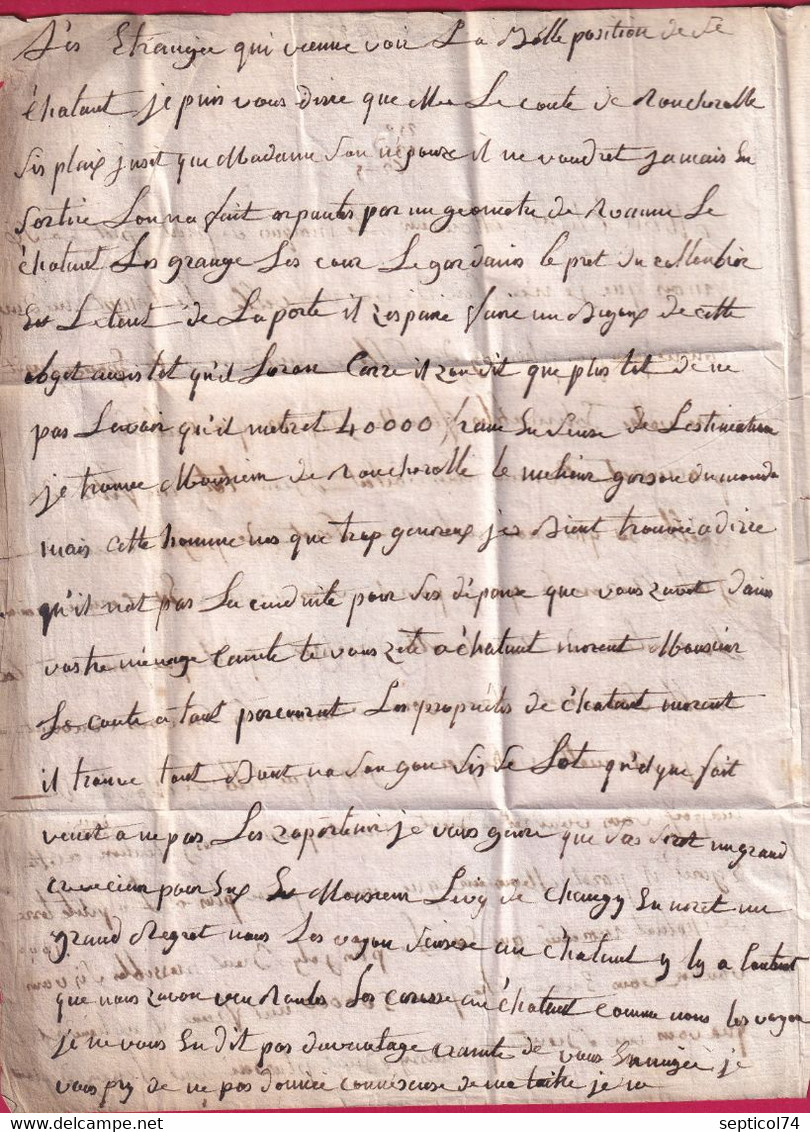 Les Etrangée qui vienne voir La Belle position de Se
Chataut je puis vous dirre que Mr Le conte de Roncherolle
Sis plaix jusct que Madame Son népouze il ne voudret jamais En
Sortire Lon na fait arpantés par un geometre de Roanne Le
Chataut Les grange Les cour Le gardains le pret du collonbier
Et Letant de La porte il zespaire faire un de cette
obget ausis tot qu'il Loron il zon dit que plus tot de ne
pas Lavoir qu'il metret 40000 franc En deuse de Lestimation
je trouve Monsieur de Roncherolle le melieur garson du monde
mais cette homme nes que trop genereux je Bient trouvée a dirre
qu'il nat pas La conduite pour Ses dépanze que vous zavet dains
vostre ménage Cante te vous zete a Chataut morent Monsieur
Le conte a tout parcourut Les propriétés de Chataut morent
il trouve tout Bient na Son gou Sis Se Lot qu'il que fait
venet a ne pas Les zaportenir je vous que Sas Seret un grand
pour Eux Et Monsieur Livy de Changy En noret un
grand Regret nous Les voyon au Chataut y ly a Lontent
que nous zavon veu Roules Les carosse au Chataut comme nous les voyon
je ne vous En dit pas davantage crainte de vous Ennuyée je
vous pry de ne pas donnée connesense de ma laitre je ne
septicol74